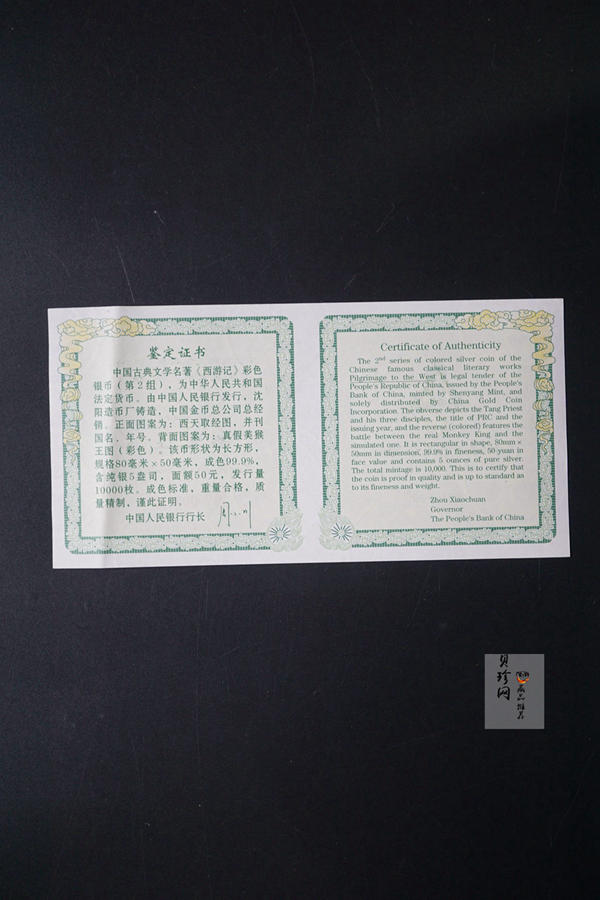 鉴定证书
中国古典文学名著《西游记》彩色
银币（第2组），为中华人民共和国
法定货币。由中国人民银行发行，沈
阳造币厂铸造，中国金币总公司总经
销。正面图案为：西天取经图，并刊
国名、年号。背面图案为：真假美猴
王图（彩色）。该币形状为长方形，
规格80毫米×50毫米，成色99.9%，
含纯银5盎司，面额50元，发行量
10000枚。成色标准，重量合格，质
量精制，谨此证明。
中国人民银行行长
Certificate of Authenticity
The 2nd series of colored silver coin of the
Chinese famous classical literary works
Pilgrimage to the West is legal tender of the
People's Republic of China, issued by the People's
Bank of China, minted by Shenyang Mint, and
solely distributed by China Gold Coin
Incorporation. The obverse depicts the Tang Priest
and his three disciples, the title of PRC and the
issuing year, and the reverse (colored) features the
battle between the real Monkey King and the
simulated one. It is rectangular in shape, 80mm×
50mm in dimension, 99.9% in fineness, 50 yuan in
face value and contains 5 ounces of pure silver.
The total mintage is 10,000. This is to certify that
the coin is proof in quality and is up to standard as
to its fineness and weight.
Zhou Xiaochuan
Governor
The People's Bank of China
藏品推荐